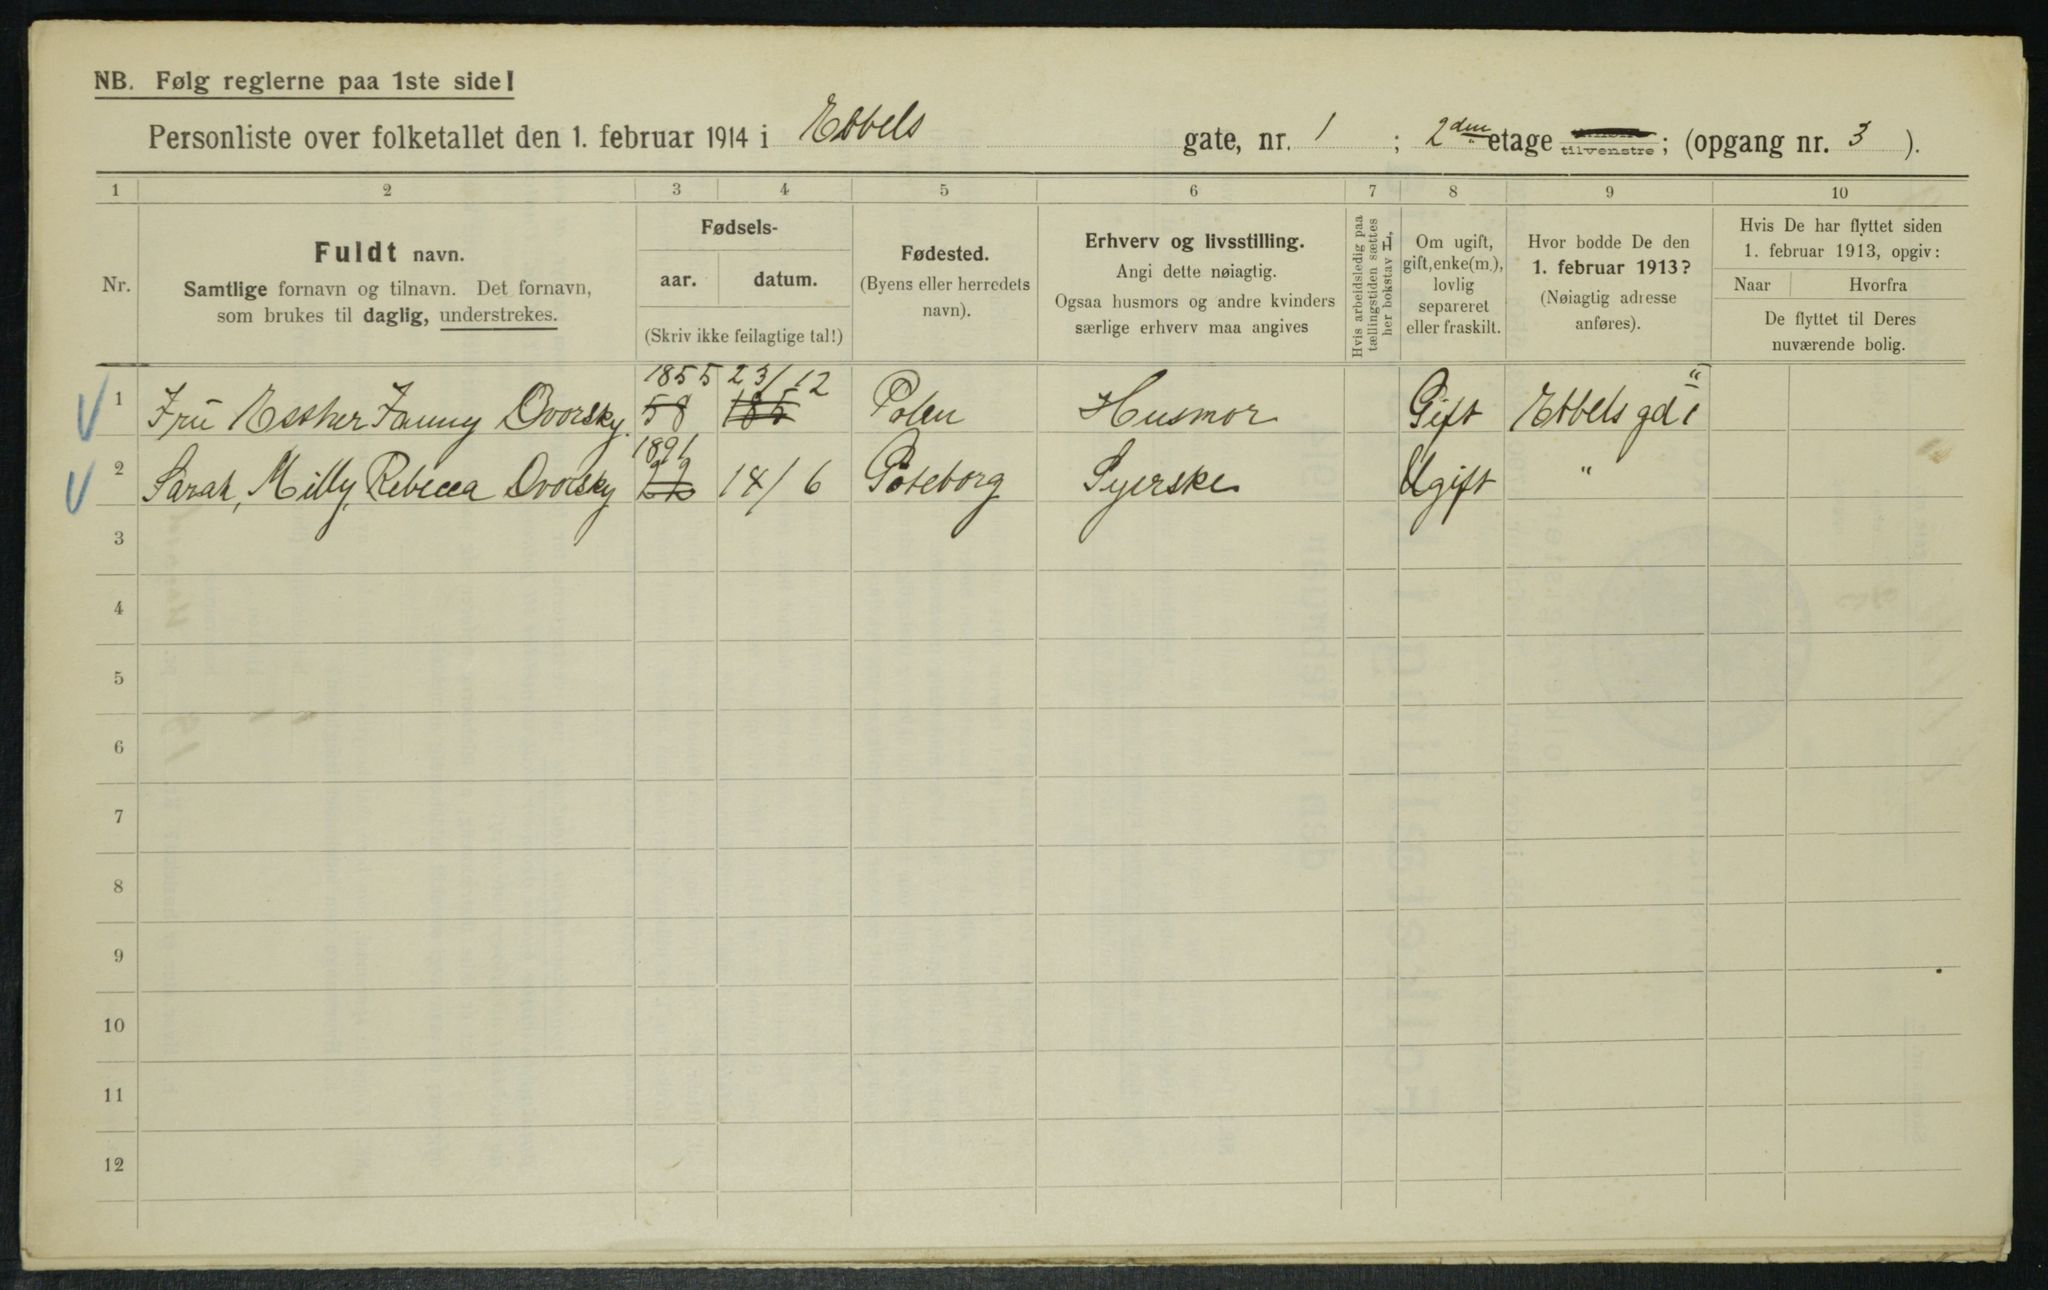 NB. Følg reglerne paa 1ste side!
Personliste over folketallet den 1. februar 1914 i Ebbels gate, nr. 1 ; 2den etage tilvenstre; (opgang nr. 3 ).
1 2 3 4 5 6 7 8 9 10
Nr.
Fuldt navn.
Samtlige fornavn og tilnavn. Det fornavn,
som brukes til daglig, understrekes.
Fødsels-
aar. datum.
(Skriv ikke feilagtige tal!)
Fødested.
(Byens eller herredets
navn).
Erhverv og livsstilling.
Angi dette nøiagtig.
Ogsaa husmors og andre kvinders
særlige erhverv maa angives
Hvis arbeidsledig paa
tællingstiden sættes
her bokstav H,
Om ugift,
gift, enke(m.),
lovlig
separeret
eller fraskilt.
Hvor bodde De den
1. februar 1913?
(Nøiagtig adresse
anføres).
Hvis De har flyttet siden
1. februar 1913, opgiv:
Naar Hvorfra
De flyttet til Deres
nuværende bolig.
1855 23/12
1 Fru Esther Fanny Dvorsky 58 Polen Husmor Gift Ebbels gd 1
1891
2 Sarah, Milly, Rebecca Dvorsky 22 14/6 Gøteborg Syerske Ugift "
3
4
5
6
7
8
9
10
11
12